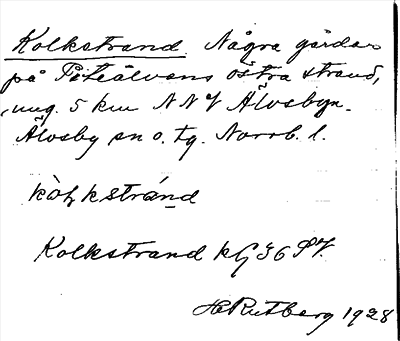 Kolkstrand. Några gårdar
på Piteälvens östra strand,
ung. 5 km NNV Älvsbyn.
Älvsby sn o. tg. Norrb. l.
Kolkstrand
HRutberg 1928